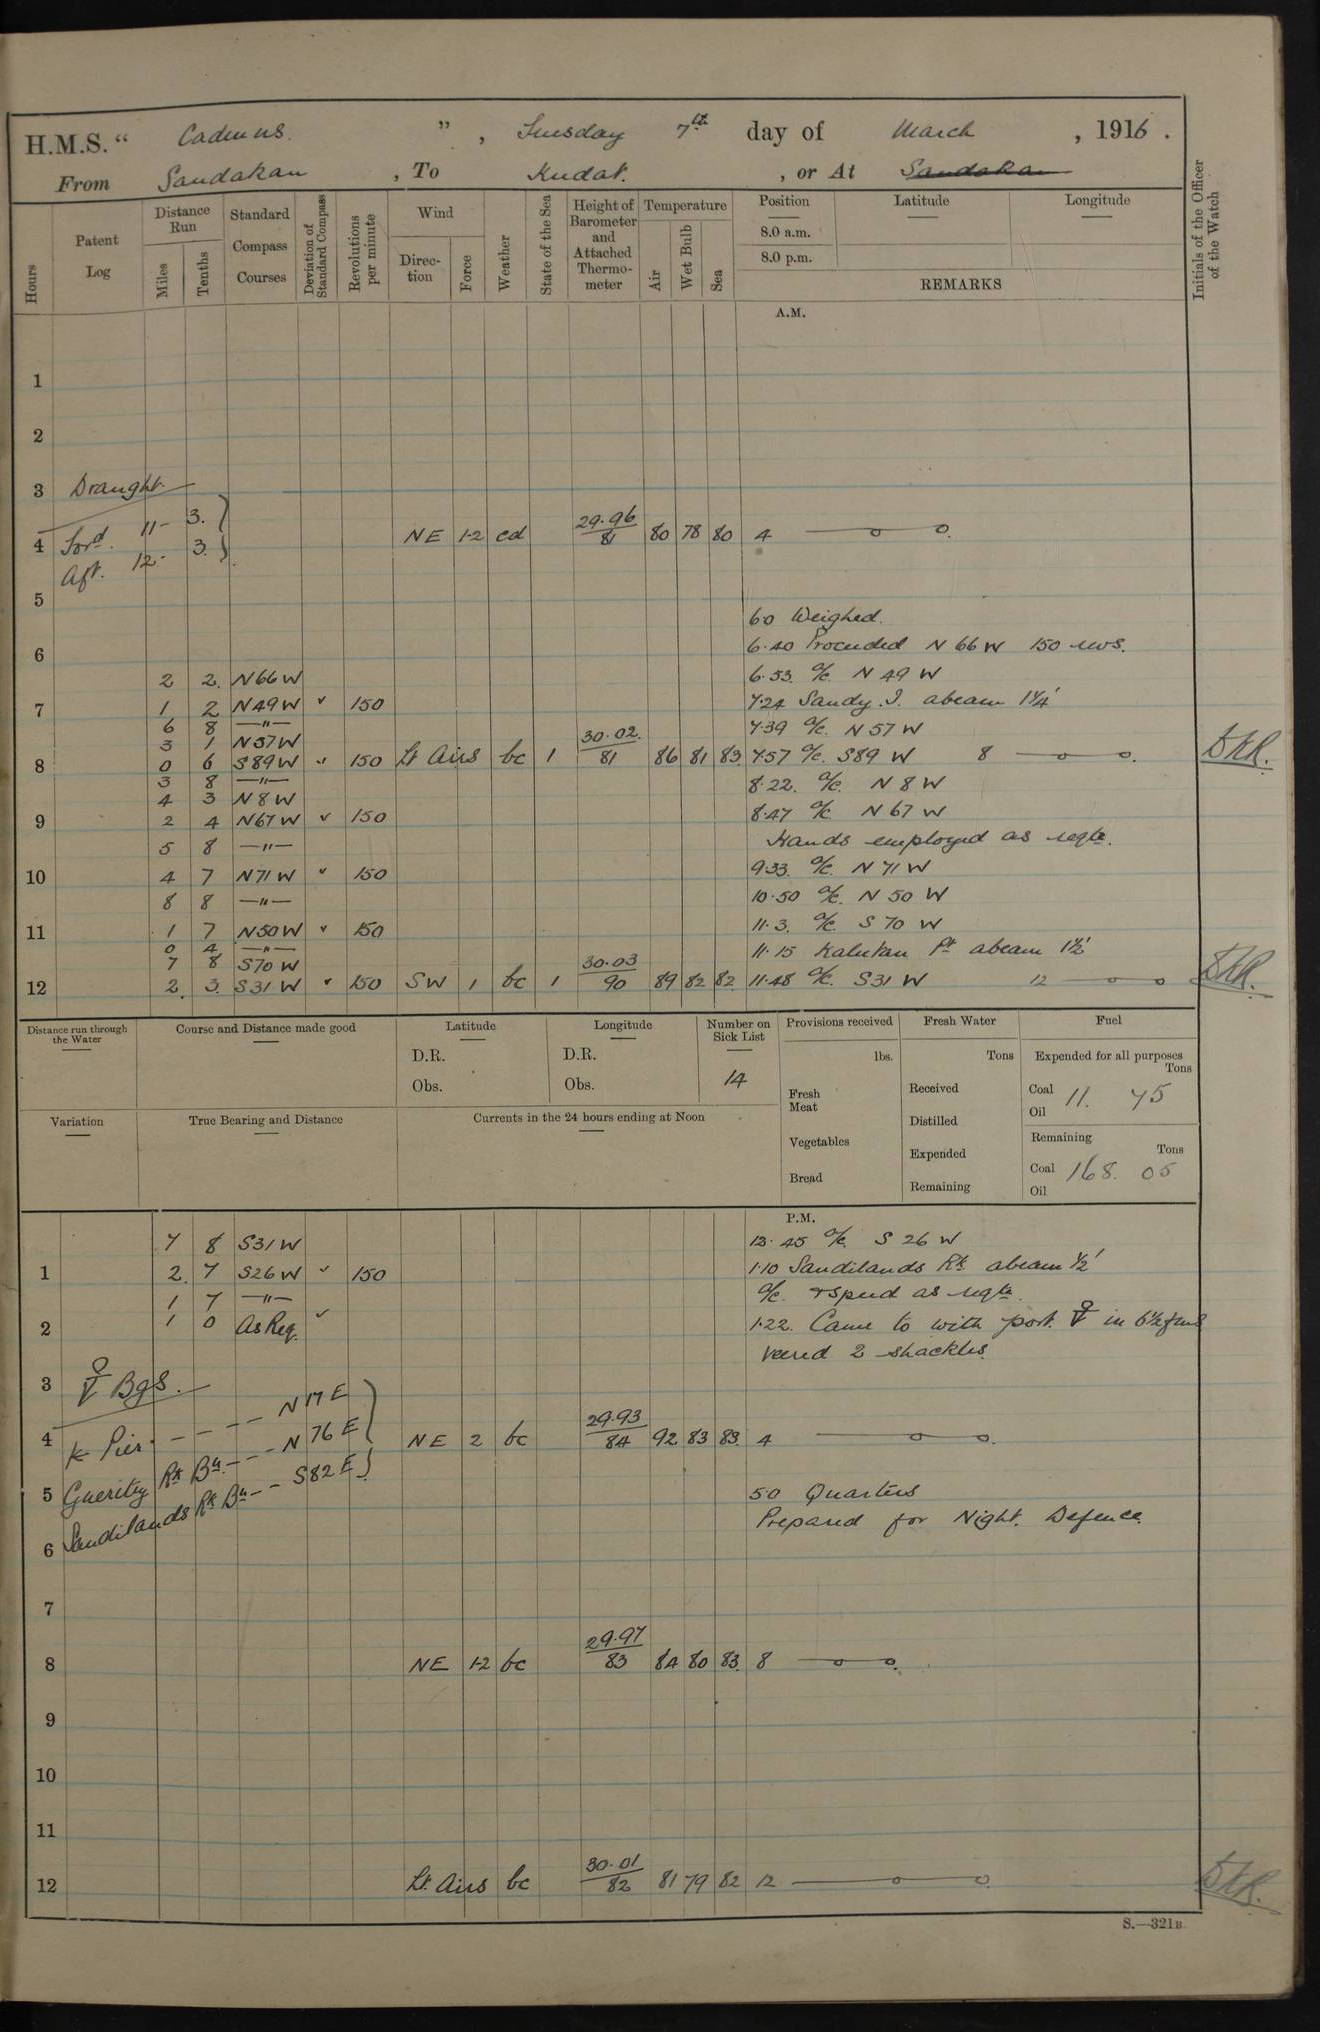 H.M.S. " Cadmus ", Tuesday 7th day of March, 1916.
From Sandakan, To Kudat, or At Sandakan
Hours
Patent Log
Distance Run
Miles
Tenths
Standard Compass Courses
Deviation of Standard Compass
Revolutions per minute
Wind
Direction
Force
Weather
State of the Sea
Height of Barometer and Attached Thermometer
Temperature
Air
Wet Bulb
Sea
Position
8.0 a.m.
8.0 p.m.
Latitude
Longitude
REMARKS
Initials of the Officer of the Watch
A.M.
1
2
3 Draught
Ford. 11 - 3.
4 NE 1-2 cd 29.96/81 80 78 80 4 —o—o.
Aft. 12 - 3.
5
6.0 Weighed.
6 6.40 Proceeded N 66 W 150 revs.
2 2 N66W 6.53 a/c. N 49 W
7 1 2 N49W " 150 7.24 Sandy I. abeam 1¼'
6 8 —"— 7.39 a/c. N 57 W
3 1 N57W
8 0 6 S89W " 150 Lt Airs bc 1 30.02/81 86 81 83 7.57 a/c. S89 W 8 —o—o.
3 8 —"— 8.22. a/c. N 8 W
4 3 N8W
9 2 4 N67W " 150 8.47 a/c. N 67 W
5 8 —"— Hands employed as reqte.
10 4 7 N71W " 150 9.33. a/c. N 71 W
8 8 —"— 10.50 a/c. N 50 W
11 1 7 N50W " 150 11.3. a/c. S 70 W
0 4 —"— 11.15 Kalukan Pt abeam 1½'
7 8 S70W
12 2 3 S31W " 150 SW 1 bc 1 30.03/90 89 82 82 11.48 a/c. S31 W 12 —o—o
Distance run through the Water
Course and Distance made good
Latitude
D.R.
Obs.
Longitude
D.R.
Obs.
Number on Sick List
14
Provisions received
lbs.
Fresh Meat
Vegetables
Bread
Fresh Water
Tons
Received
Distilled
Expended
Remaining
Fuel
Expended for all purposes
Tons
Coal 11. 75
Oil
Remaining
Tons
Coal 168. 05
Oil
Variation
True Bearing and Distance
Currents in the 24 hours ending at Noon
P.M.
7 8 S31W 12.45 a/c. S 26 W
1 2 7 S26W " 150 1.10 Sandilands Rk abeam ½'
1 7 —"— a/c. & speed as reqte.
2 1 0 As Req. " 1.22. Came to with port ⚓ in 6½ fms
veered 2 shackles.
3 ⚓ Bgs.
K Pier - - - N 17 E
4 NE 2 bc 29.93/84 92 83 83 4 —o—o.
Gueritz Rk Bn - - - N 76 E
5 5.0 Quarters
Sandilands Rk Bn - - S82E
Prepared for Night Defence.
6
7
8 NE 1-2 bc 29.97/83 84 80 83 8 —o—o.
9
10
11
12 Lt. Airs bc 30.01/82 81 79 82 12 —o—o.
S.—321B